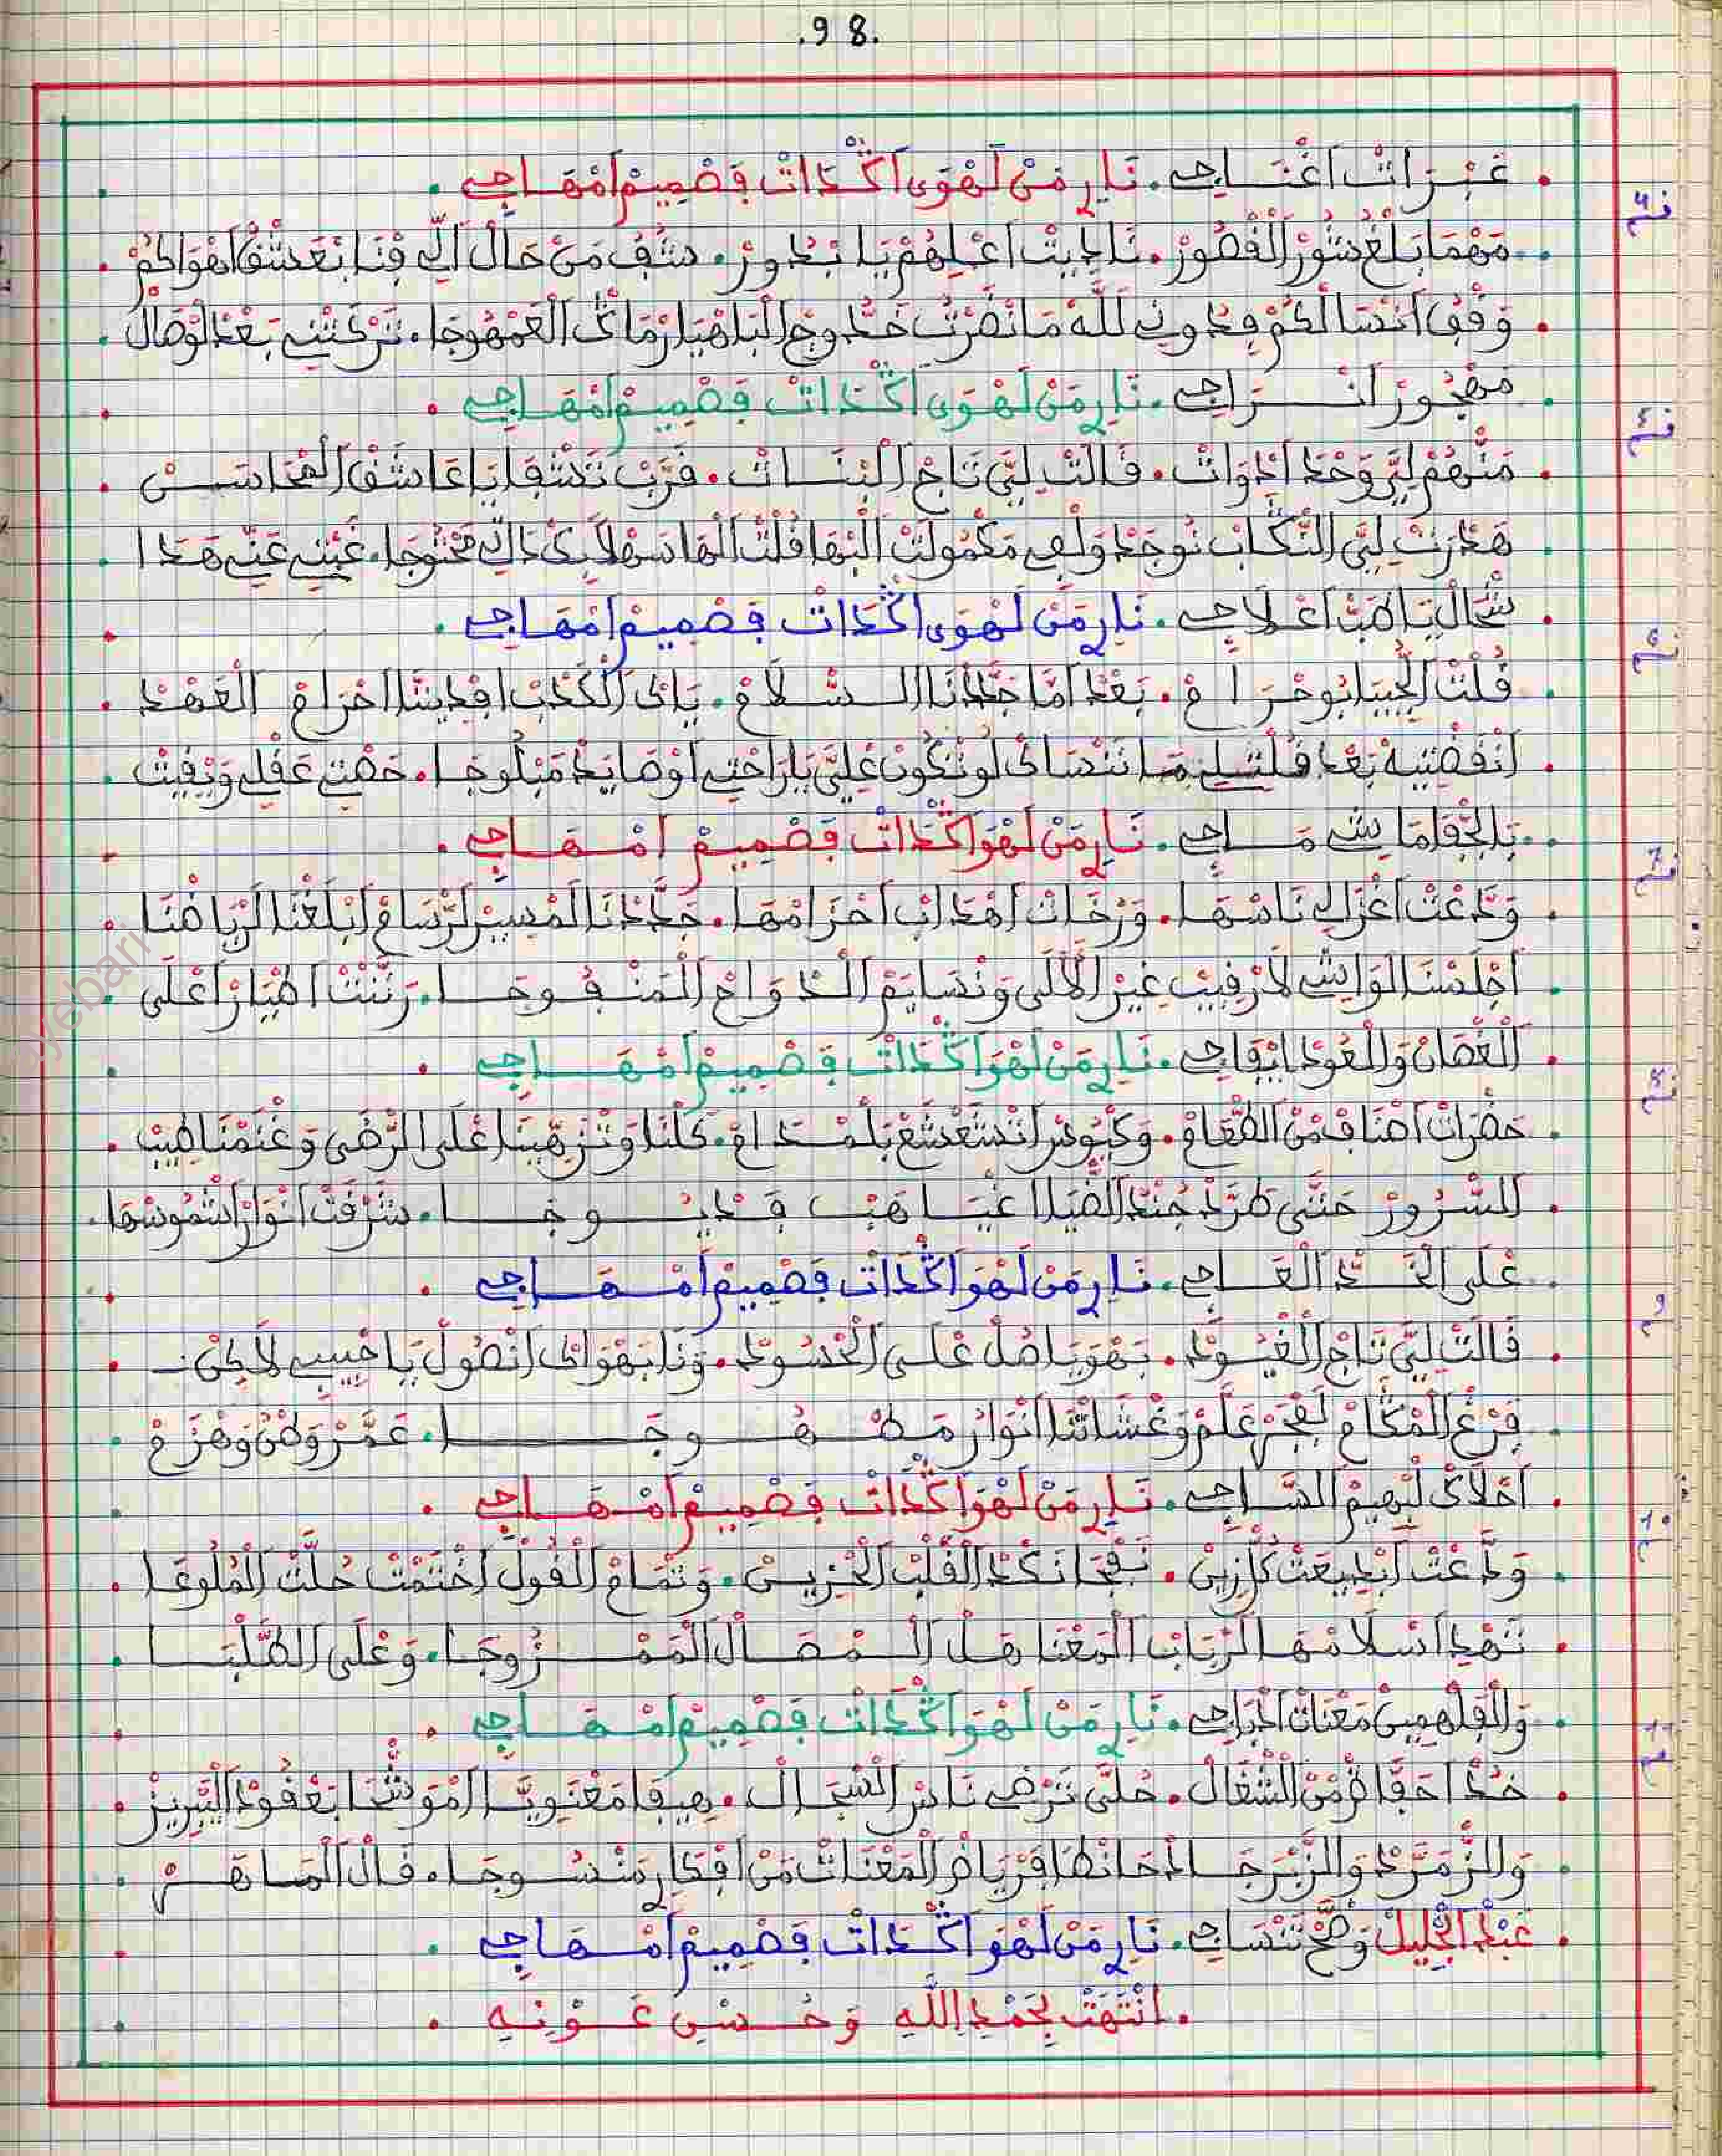 .98.
. عَبْرَاتْ اعْنَاجِي . نَارْ مَنْ لَهْوَى اكْدَاتْ فَصْمِيمْ امْهَاجِي .
. مَهْمَا بَلْغْ سُورْ القْصُورْ . نَادِيتْ اعْلِيهُمْ يَا بْدُورْ . شُفُ مَنْ حَالْ الِّي فْنَا بْعَشْقُ اهْوَاكُمْ .
. وَقْفُ انْسَالْكُمْ فِدُونِي لَلَّهْ مَا نْضَرْتُ خَدُّوجْ البَاهْيَا رْمَاكْ العَمْهُوجَا . تَرْكَتْنِي بَعْدْ لَوْصَالْ .
. مَهْجُورْ انْرَاجِي . نَارْ مَنْ لَهْوَى اكْدَاتْ فَصْمِيمْ امْهَاجِي .
. مَنْهُمْ لِيَّ وَحْدَ ادْوَاتْ . قَالَتْ لِيَّ تَاجْ البْنَاتْ . قَرَّبْ تَشْقَى يَا عَاشَقْ المْحَاسَنْ .
. هَدْرَتْ لِيَّ الرْكَابْ نُوجَدْ وَلْفِي مَكْمُولَتْ البْهَا قُلْتْ الْهَا سَهْلَا بِكْ دَاتِي مَحْتُوجَا . غَبْتِي عَنِّي هَدَا .
. شْحَالْ يَا طَبّْ اعْلَاجِي . نَارْ مَنْ لَهْوَى اكْدَاتْ فَصْمِيمْ امْهَاجِي .
. قُلْتْ الْحْبِيبَا بُوحْرَامْ . بَعْدْ امَّا جَدَّدْنَا السْلَامْ . يَاكْ الْكْدَبْ افْدِينَّا احْرَامْ الْعَهْدْ .
. انْقَضْتِيهْ بَعْدْ قُلْتِيلِي مَا نَنْسَاكْ لُو نْكُونْ عْلِيَّ يَا رَاحْتِي اوْصَايَدْ مَبْلُوجَا . خَضْتِي عَقْلِي وَبْقِيتْ .
. بَالْجْفَا مَا يْشِي مَاجِي . نَارْ مَنْ لَهْوَ اكْدَاتْ فَصْمِيمْ امْهَاجِي .
. وَدَّعْتْ اغْزَالِي نَاسْهَا . وَرْخَاتْ اهْدَابْ احْزَامْهَا . جَدَّدْنَا لَمْسِيرْ لَرْسَامْ ابْلَغْنَا لَرْيَاضْنَا .
. اجْلَسْنَا لَا وَاشِي لَا رْقِيبْ غِيرْ الْآلَى وَنْسَايَمْ الدْوَاحْ الْمَنْفُوحَا . رَنَّتْ اطْيَارْ اعْلَى .
. الْغْصَانْ وَالْعُودْ ايْقَاجِي . نَارْ مَنْ لَهْوَ اكْدَاتْ فَصْمِيمْ امْهَاجِي .
. حَضْرَاتْ اصْنَافْ مْنْ الطْعَامْ . وَكْيُوسْ اتْشَعْشَعْ بَلْمْدَامْ . كَلْنَا وَتْنَزَّهِينَا اعْلَى الرْضَى وَغْنَمْنَا طِيبْ .
. السْرُورْ حَتَّى طَرَّدْ جُنْدْ الضْيَا اغْيَاهَبْ فَدْيُوجَا . شَرْقَتْ انْوَارْ اشْمُوسْهَا .
. عْلَى الْخَدّْ الْعَاجِي . نَارْ مَنْ لَهْوَ اكْدَاتْ فَصْمِيمْ امْهَاجِي .
. قَالَتْ لِيَّ تَاجْ الْغْيُودْ . بَهْوَيَا صُلْ عْلَى الْحْسُودْ . وَنَا بَهْوَاكْ انْصُولْ يَا حْبِيبِي لَاكِنْ .
. فْرَغْ الْمْكَامْ لَفْجَرْ عَلَّمْ وَغْشَاتْنَا انْوَارْ مَطْهُوجَا . عَمَّرْ وَطْنُ وَهْزَمْ .
. احْلَاكْ لْبْهِيمْ السَّاجِي . نَارْ مَنْ لَهْوَ اكْدَاتْ فَصْمِيمْ امْهَاجِي .
. وَدَّعْتْ ابْدِيعَتْ كُلّْ زِينْ . نَفْجَا نَكْدْ الْقَلْبْ الْحْزِينْ . وَتْمَامْ الْقُولْ اخْتَمْتْ حُلَّتْ الْمُلُوعَا .
. نَهْدِ اسْلَامْهَا لَرْبَابْ الْمَعْنَا هَلْ الْمْصَالْ الْمَمْزُوجَا . وَعْلَى الطَّلْبَا .
. وَالْفَاهْمِينْ مَعْنَاتْ ادْبَاجِي . نَارْ مَنْ لَهْوَ اكْدَاتْ فَصْمِيمْ امْهَاجِي .
. خُدْ احَفَّاظْ مْنْ الشْغَالْ . حُلَّى تَرْضِي نَاسْ السْجَالْ . هِيفَا مَعْنَوِيَّا امْوَشْحَا بَعْقُودْ الَبْرِيزْ .
. وَالزْمَرَّدْ وَالزَّبَرْجَادْ حَانْطَا فَرْيَاضْ الْمَعْنَاتْ مَنْ افْكَارِ مَنْسُوجَا . قَالْ الْمَاهَرْ .
. عَبْدْ الْجْلِيلْ وَضَّحْ نَنْسَاجِي . نَارْ مَنْ لَهْوَ اكْدَاتْ فَصْمِيمْ امْهَاجِي .
. انْتَهَتْ بِحَمْدِ اللَّهِ وَحُسْنِ عَوْنِهِ .